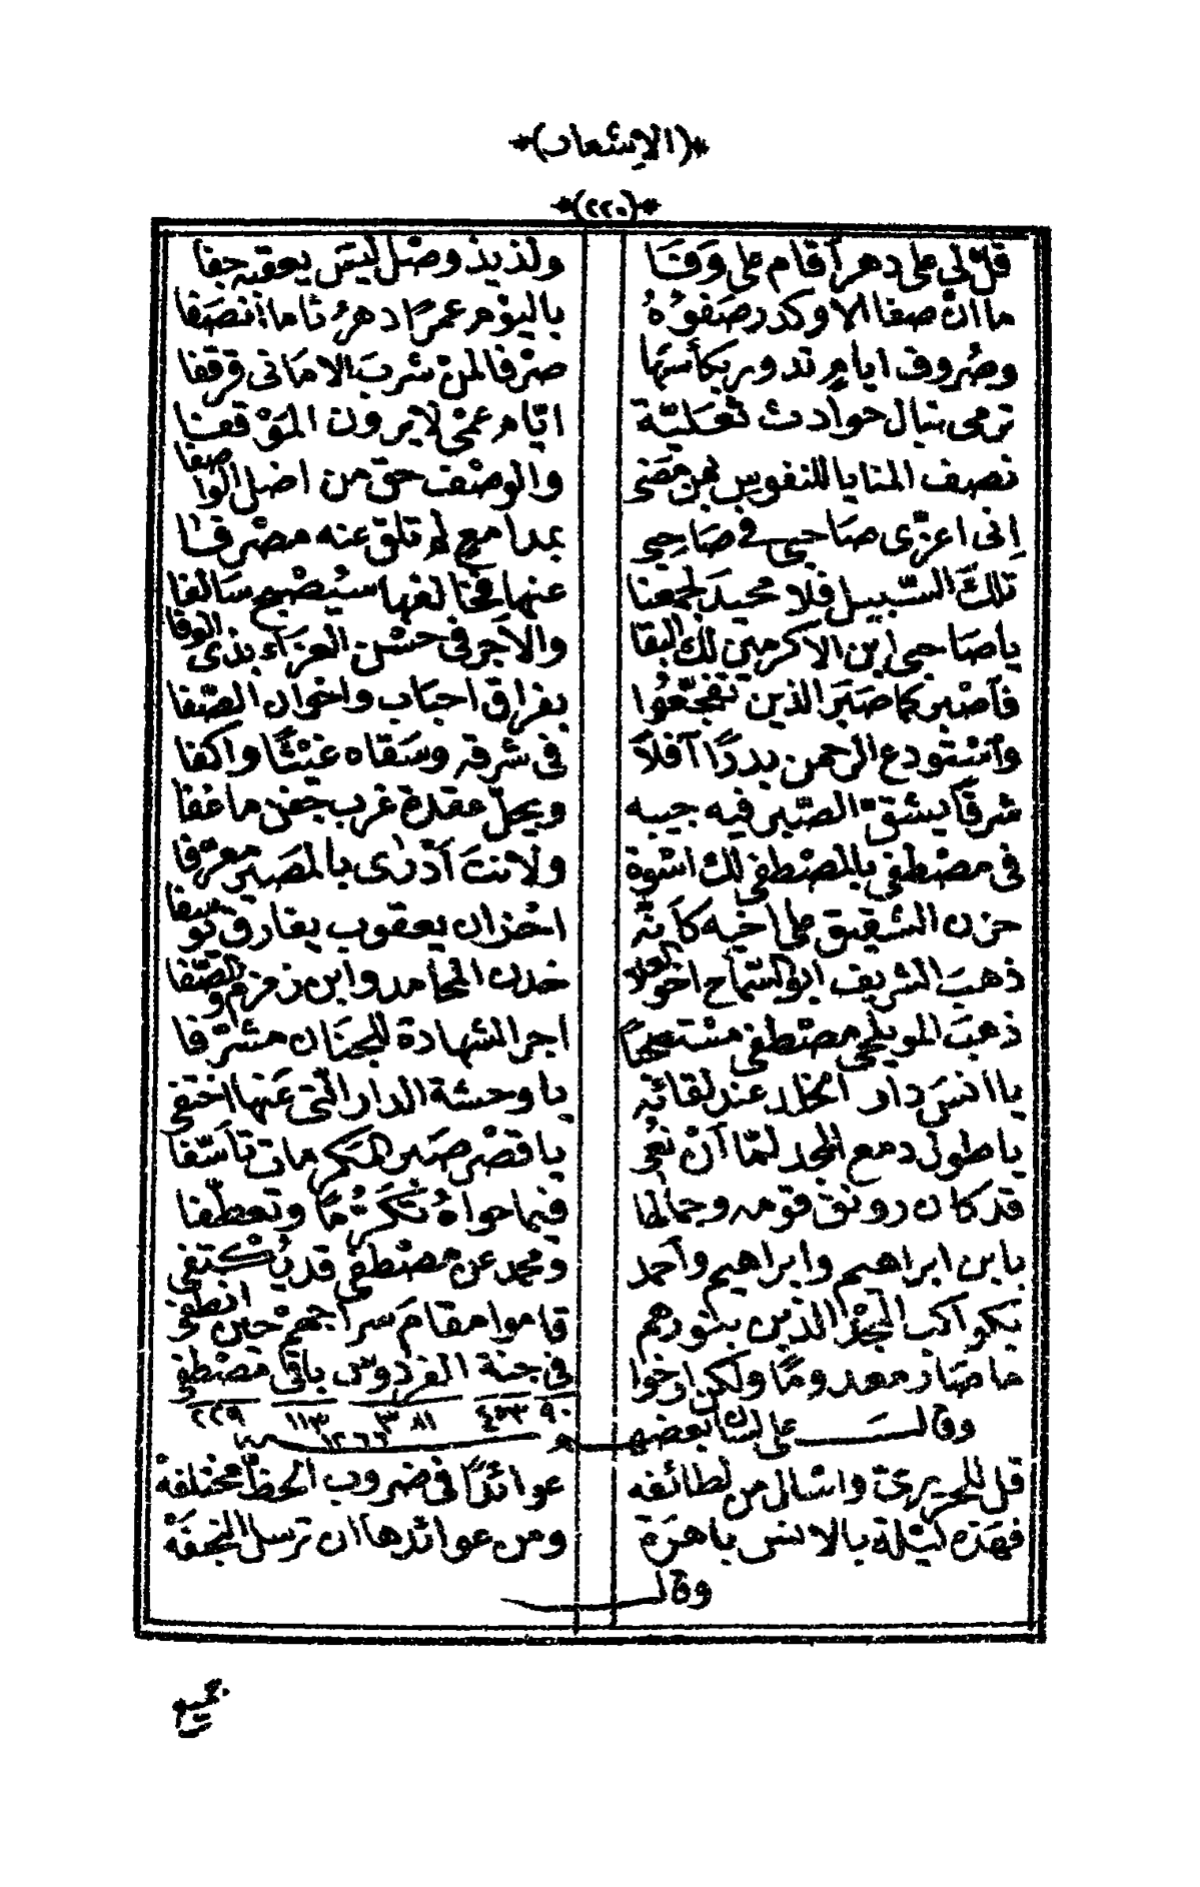 *(الاشعار)*
*(٢٢٠)*
قل لي على دهر أقام على وفا ولذيذ وصل ليس يعقبه جفا
ما ان صفا الا وكدر صفوه باليوم عمرا دهر ناما أنصفا
وصروف ايام تدور بكأسها صرفا لمن شرب الاماني قرقفا
ترمي نبال حوادث ايام عمى لا يرون الموقفا
نصف المنايا للنفوس بمن مضى والوصف حق من اضل الواصفا
إني اعزى صاحبى في صاحبى بمدامع لم تلق عنه مصرفا
تلك السبيل فلا محيد لجمعنا عنها فخالفها سيصبح سالفا
يا صاحبى ابن الاكرمين لك البقا والأجر في حسن العزاء بذى الوفا
فأصبر كما صبر الذين تفجعوا بفراق احباب واخوان الصفا
وأستودع الرحمن بدرا آفلا في شرقه وسقاه غيثا واكفا
شرقا يشق الصبر فيه جيبه ويحل عقدة غرب جفن ما غفا
في مصطفى بالمصطفى لك اسوة ولانت أدرى بالمصير معرفا
حزن الشقيق على اخيه كأنه احزان يعقوب يفارق يوسفا
ذهب الشريف ابو السماح اخو العلا خدن المحامد وابن زمزم والصفا
ذهب المويلحي مصطفى مستصحبا اجر الشهادة للجنان مشرفا
يا انس دار الخلد عند لقائه يا وحشة الدار التي عنها اختفى
يا طول دمع المجد لما أن نعى يا قصر صبر المكرمات تأسفا
قد كان رونق قومه وجمالها فيما حواه تكرما وتعطفا
يا ابن ابراهيم وابراهيم وأحمد ومحمد عن مصطفى قد يكتفى
بكواكب المجد الذين بنورهم قاموا مقام سراجهم حين انطفى
ما صار معدوما ولكن ارخوا في جنة الفردوس باقى مصطفى
٩٠ ٤٥٣ ٣٨١ ١١٣ ٢٢٩
١٢٦٦ سنه
وقال على لسان بعضهم
قل للحريرى واسأل من لطائفه عوائدا في ضروب الحظ مختلفة
فهذه ليلة بالانس باهرة ومن عوائدها ان ترسل التحفة
وقال